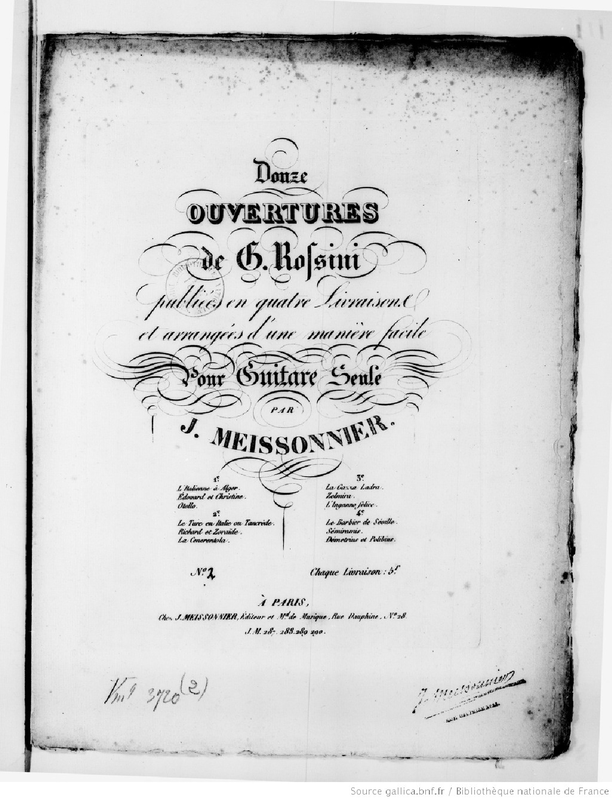 Douze
OUVERTURES
de G. Rossini
publiées en quatre Livraisons
et arrangées d'une manière facile
Pour Guitare Seule
PAR
J. MEISSONNIER.
1e.
L'Italienne à Alger.
Édouard et Christine.
Otello.
2e.
Le Turc en Italie ou Tancrède.
Richard et Zoraïde.
La Cenerentola.
3e.
La Gazza Ladra.
Zelmira.
L'Inganno felice.
4e.
Le Barbier de Séville.
Sémiramis.
Démétrius et Polibius.
No. 2
Chaque Livraison: 5f
À PARIS,
Chez J. MEISSONNIER, Éditeur et Md. de Musique, Rue Dauphine, No. 28.
J.M. 287. 288. 289. 290.
3920 (2)
J. Meissonnier
Source gallica.bnf.fr / Bibliothèque nationale de France